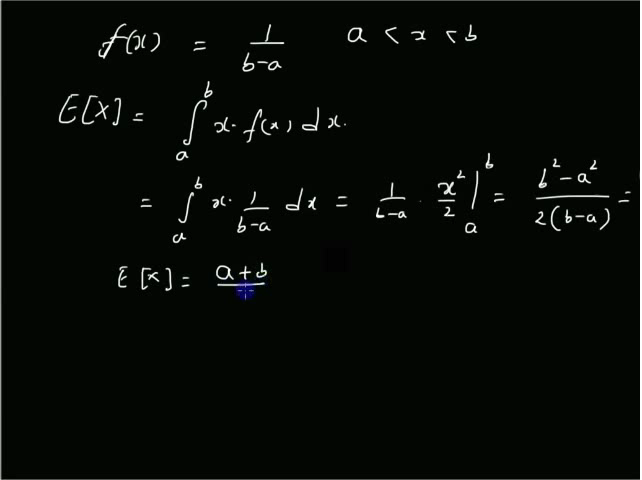 f(x) = 1/(b-a) a < x < b
E[X] = ∫_a^b x · f(x) dx.
= ∫_a^b x · 1/(b-a) dx = 1/(b-a) · x²/2 |_a^b = (b² - a²)/(2(b-a)) =
E[x] = a+b